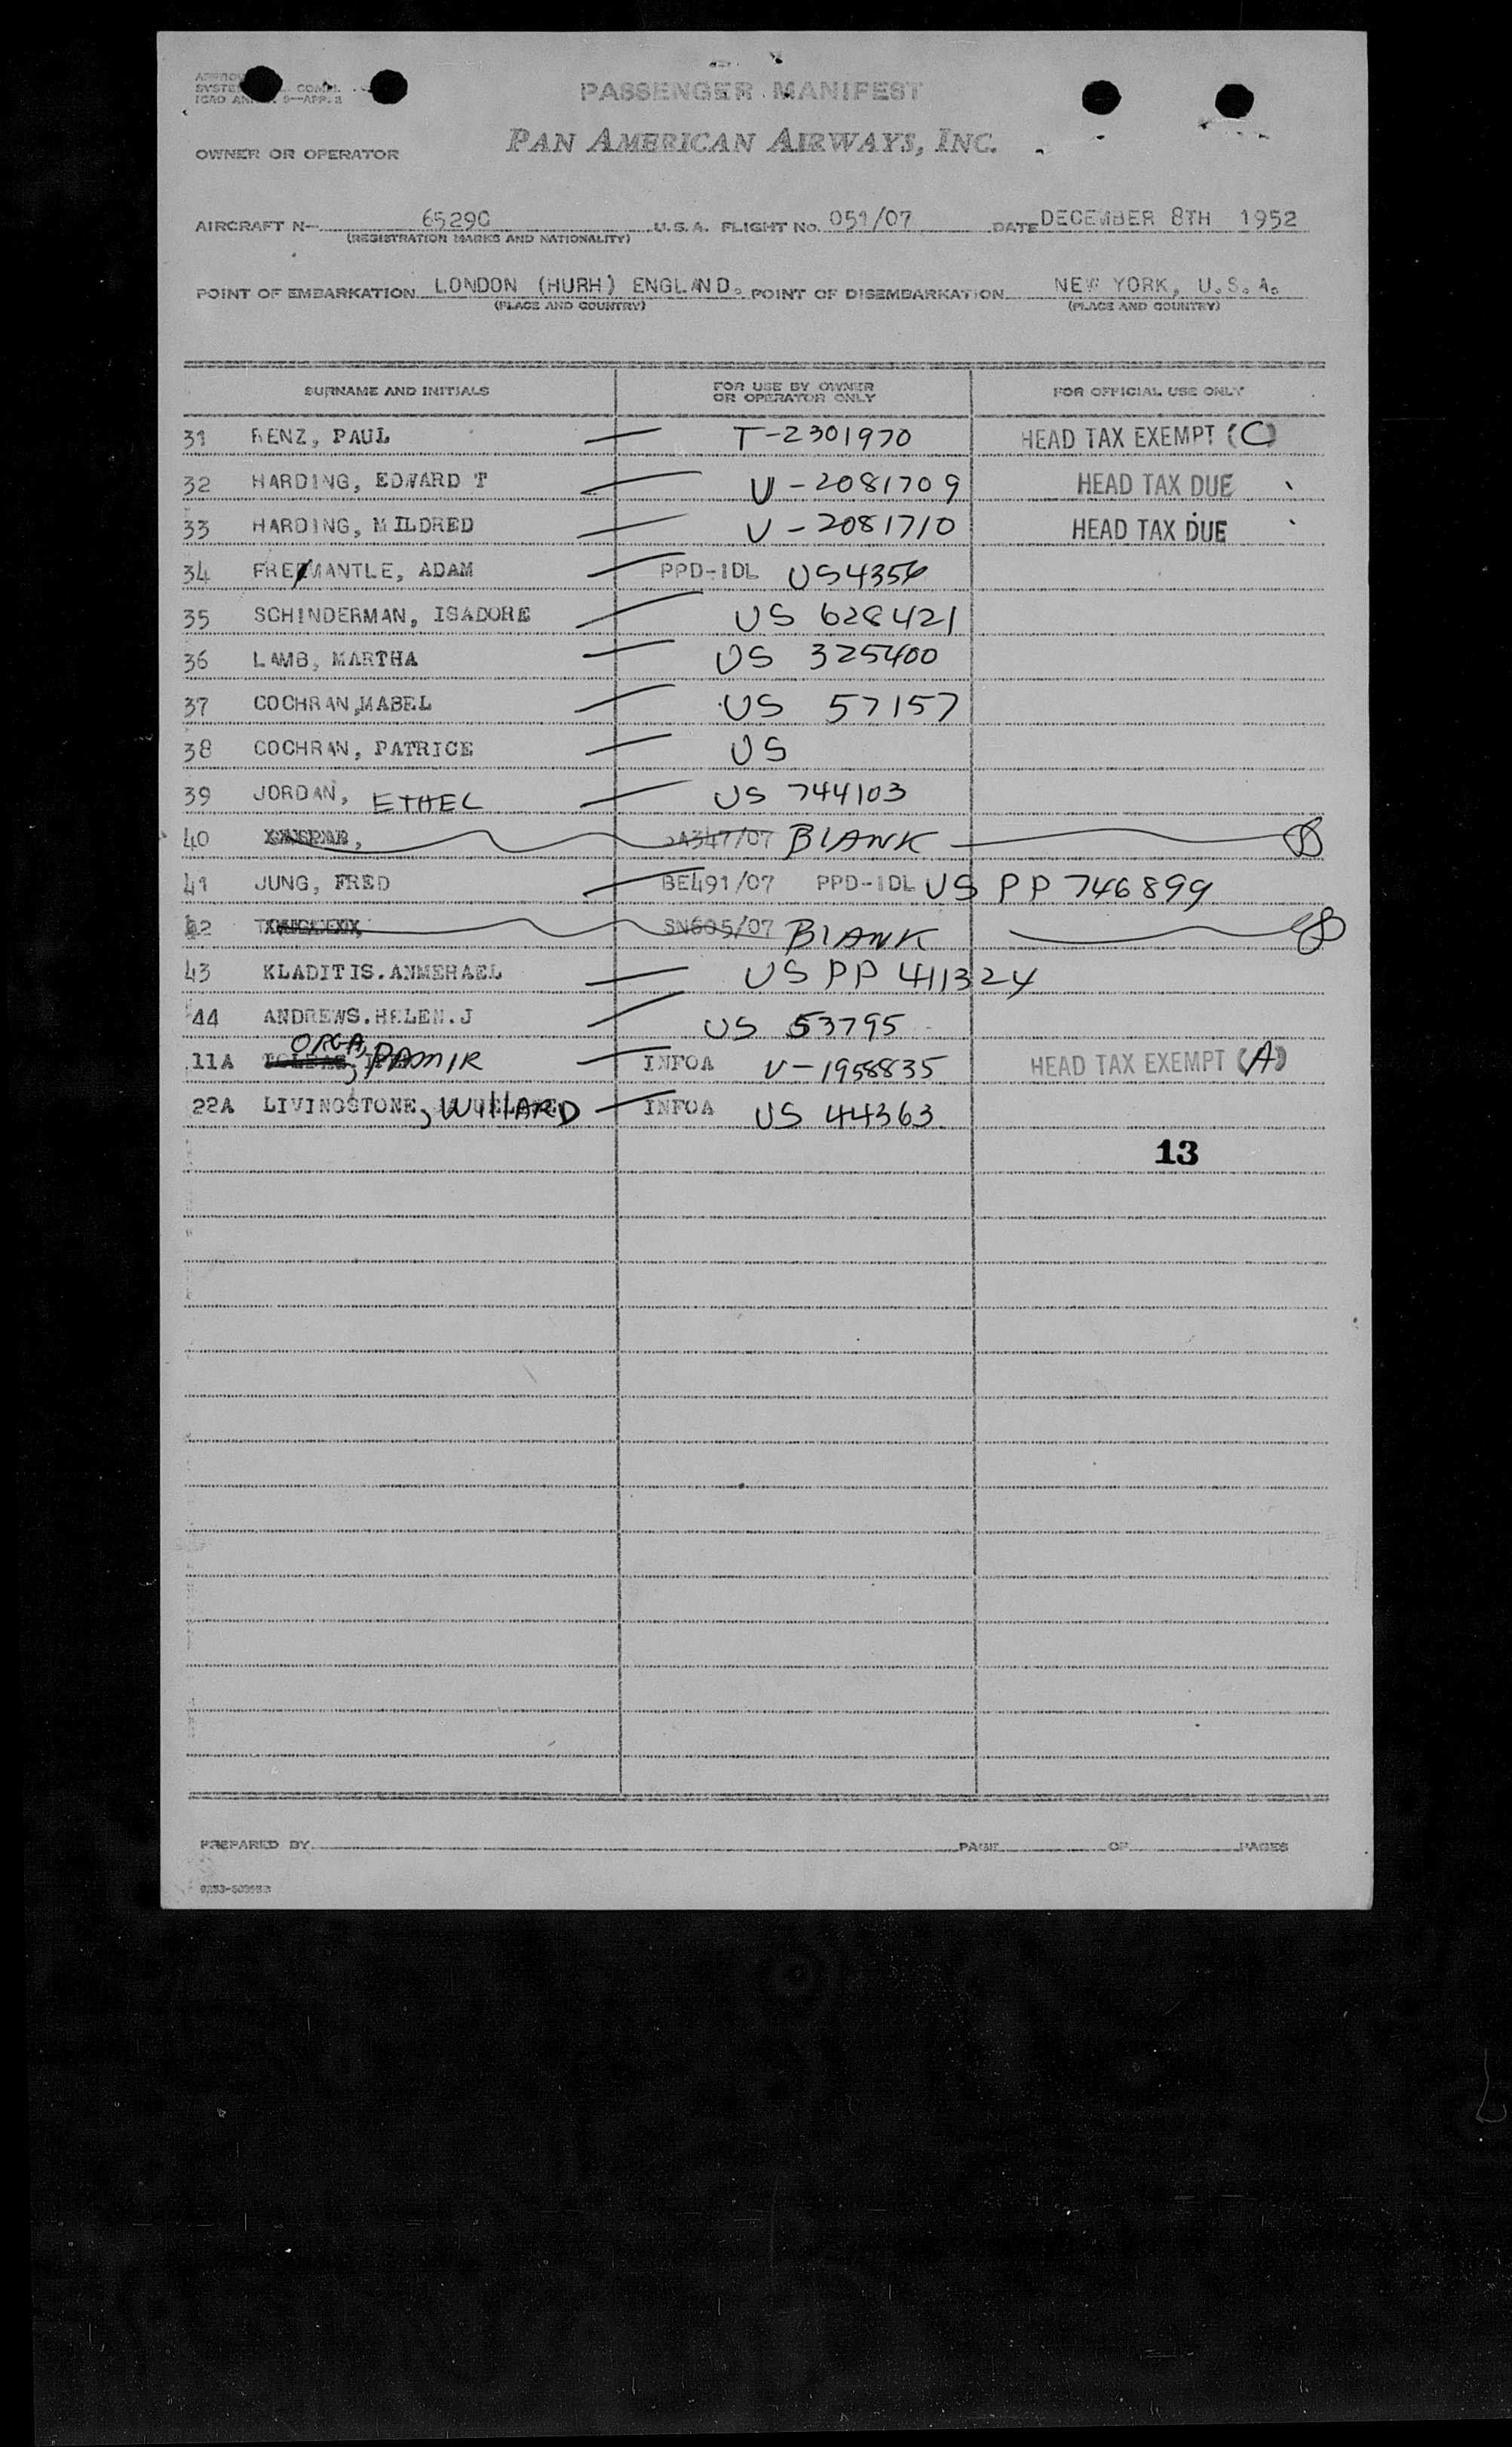 PASSENGER MANIFEST
PAN AMERICAN AIRWAYS, INC.
OWNER OR OPERATOR
AIRCRAFT N— 65290 U.S.A. FLIGHT No. 051/07 DATE DECEMBER 8TH 1952
(REGISTRATION MARKS AND NATIONALITY)
POINT OF EMBARKATION LONDON (HURH) ENGLAND. POINT OF DISEMBARKATION NEW YORK, U.S.A.
(PLACE AND COUNTRY) (PLACE AND COUNTRY)
SURNAME AND INITIALS FOR USE BY OWNER OR OPERATOR ONLY FOR OFFICIAL USE ONLY
31 RENZ, PAUL T-2301970 HEAD TAX EXEMPT (C)
32 HARDING, EDWARD T V-2081709 HEAD TAX DUE
33 HARDING, MILDRED V-2081710 HEAD TAX DUE
34 FREEMANTLE, ADAM PPD-IDL US4356
35 SCHINDERMAN, ISADORE US 628421
36 LAMB, MARTHA US 325400
37 COCHRAN,MABEL US 57157
38 COCHRAN, PATRICE US
39 JORDAN, ETHEL US 744103
40 347/07 BLANK
41 JUNG, FRED BE491/07 PPD-IDL US PP 746899
42 SN605/07 BLANK
43 KLADITIS.ANMEHAEL US PP 411324
44 ANDREWS.HELEN.J US 53795
11A ORGA, PAMIR INFOA V-1958835 HEAD TAX EXEMPT (A)
22A LIVINGSTONE, WILLARD INFOA US 44363
13
PREPARED BY PAGE OF PAGES